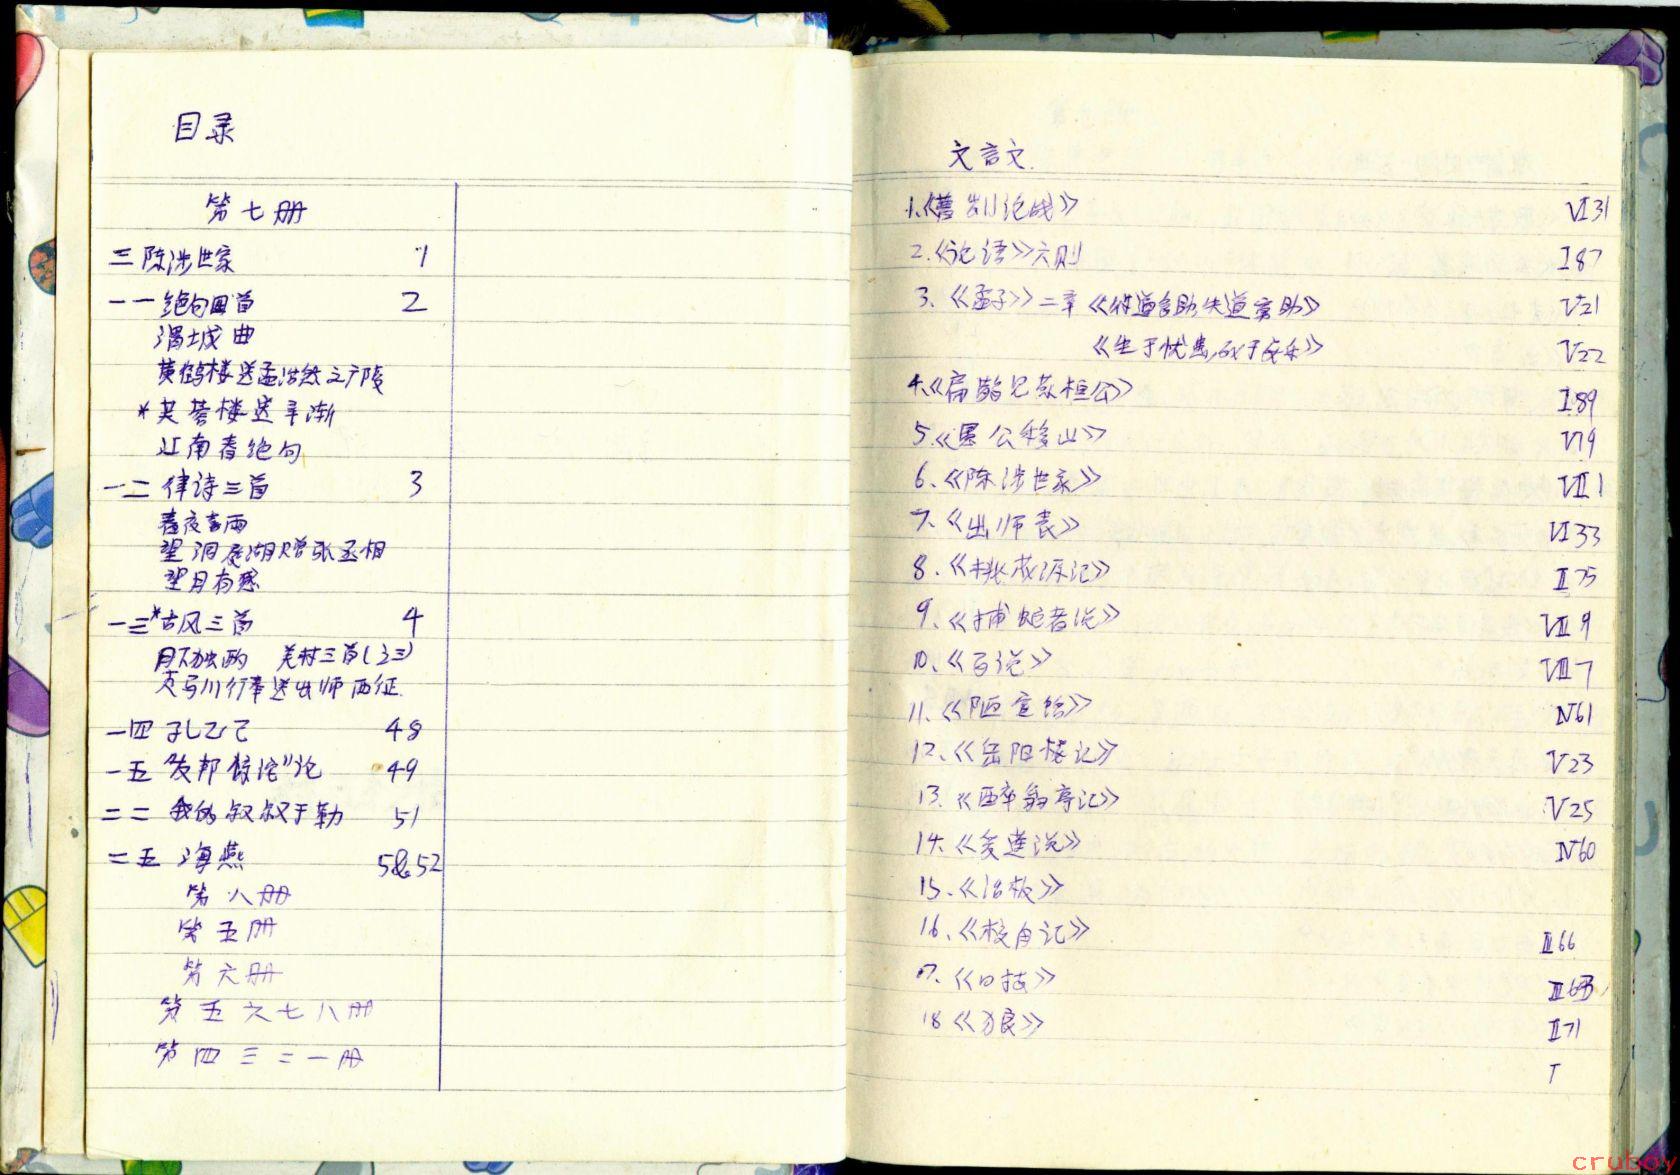 目录
第七册
三 陈涉世家 1
一一 绝句四首 2
渭城曲
黄鹤楼送孟浩然之广陵
*芙蓉楼送辛渐
江南春绝句
一二 律诗三首 3
春夜喜雨
望洞庭湖赠张丞相
望月有感
一三*古风三首 4
月下独酌 羌村三首(之三)
走马川行奉送出师西征
一四 孔乙己 48
一五 "友邦惊诧"论 49
二二 我的叔叔于勒 51
二五 海燕 50.52
第八册
第五册
第六册
第五六七八册
第四三二一册
文言文
1.《曹刿论战》 Ⅵ31
2.《论语》六则 Ⅰ87
3.《孟子》二章《得道多助失道寡助》 Ⅴ21
《生于忧患,死于安乐》 Ⅴ22
4.《扁鹊见蔡桓公》 Ⅰ89
5.《愚公移山》 Ⅴ19
6.《陈涉世家》 Ⅶ1
7.《出师表》 Ⅵ33
8.《桃花源记》 Ⅱ75
9.《捕蛇者说》 Ⅷ9
10.《马说》 Ⅷ7
11.《陋室铭》 Ⅳ61
12.《岳阳楼记》 Ⅴ23
13.《醉翁亭记》 Ⅴ25
14.《爱莲说》 Ⅳ60
15.《活板》
16.《核舟记》 Ⅲ66
17.《口技》 Ⅲ63
18《狼》 Ⅱ71
cruboy